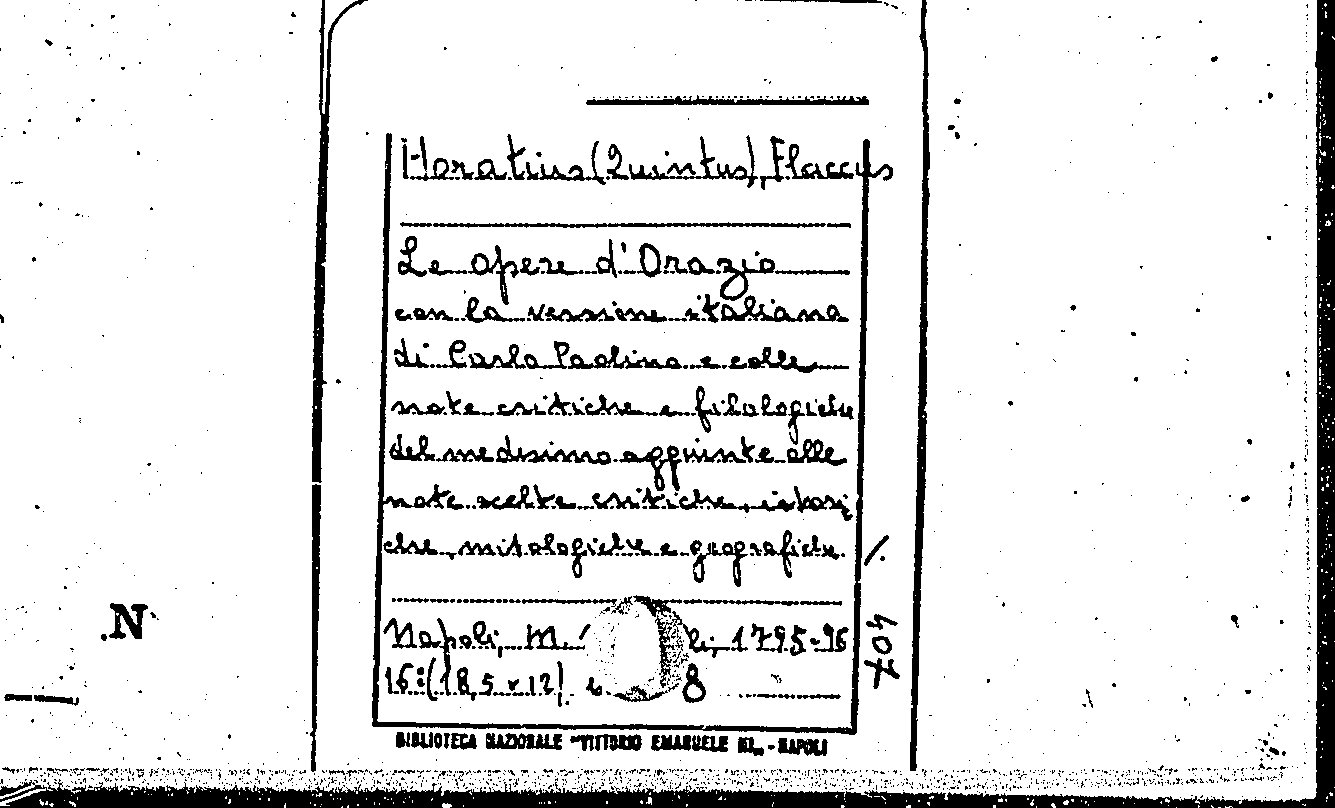 Horatius (Quintus), Flaccus
Le opere d'Orazio
con la versione italiana
di Carlo Paolino e colle
note critiche e filologiche
del medesimo aggiunte alle
note scelte critiche, istori
che, mitologiche e geografiche.
/.
Napoli, M. li, 1795-96
16: (18,5 x 12) 8
407
.N
BIBLIOTECA NAZIONALE "VITTORIO EMANUELE III„ - NAPOLI